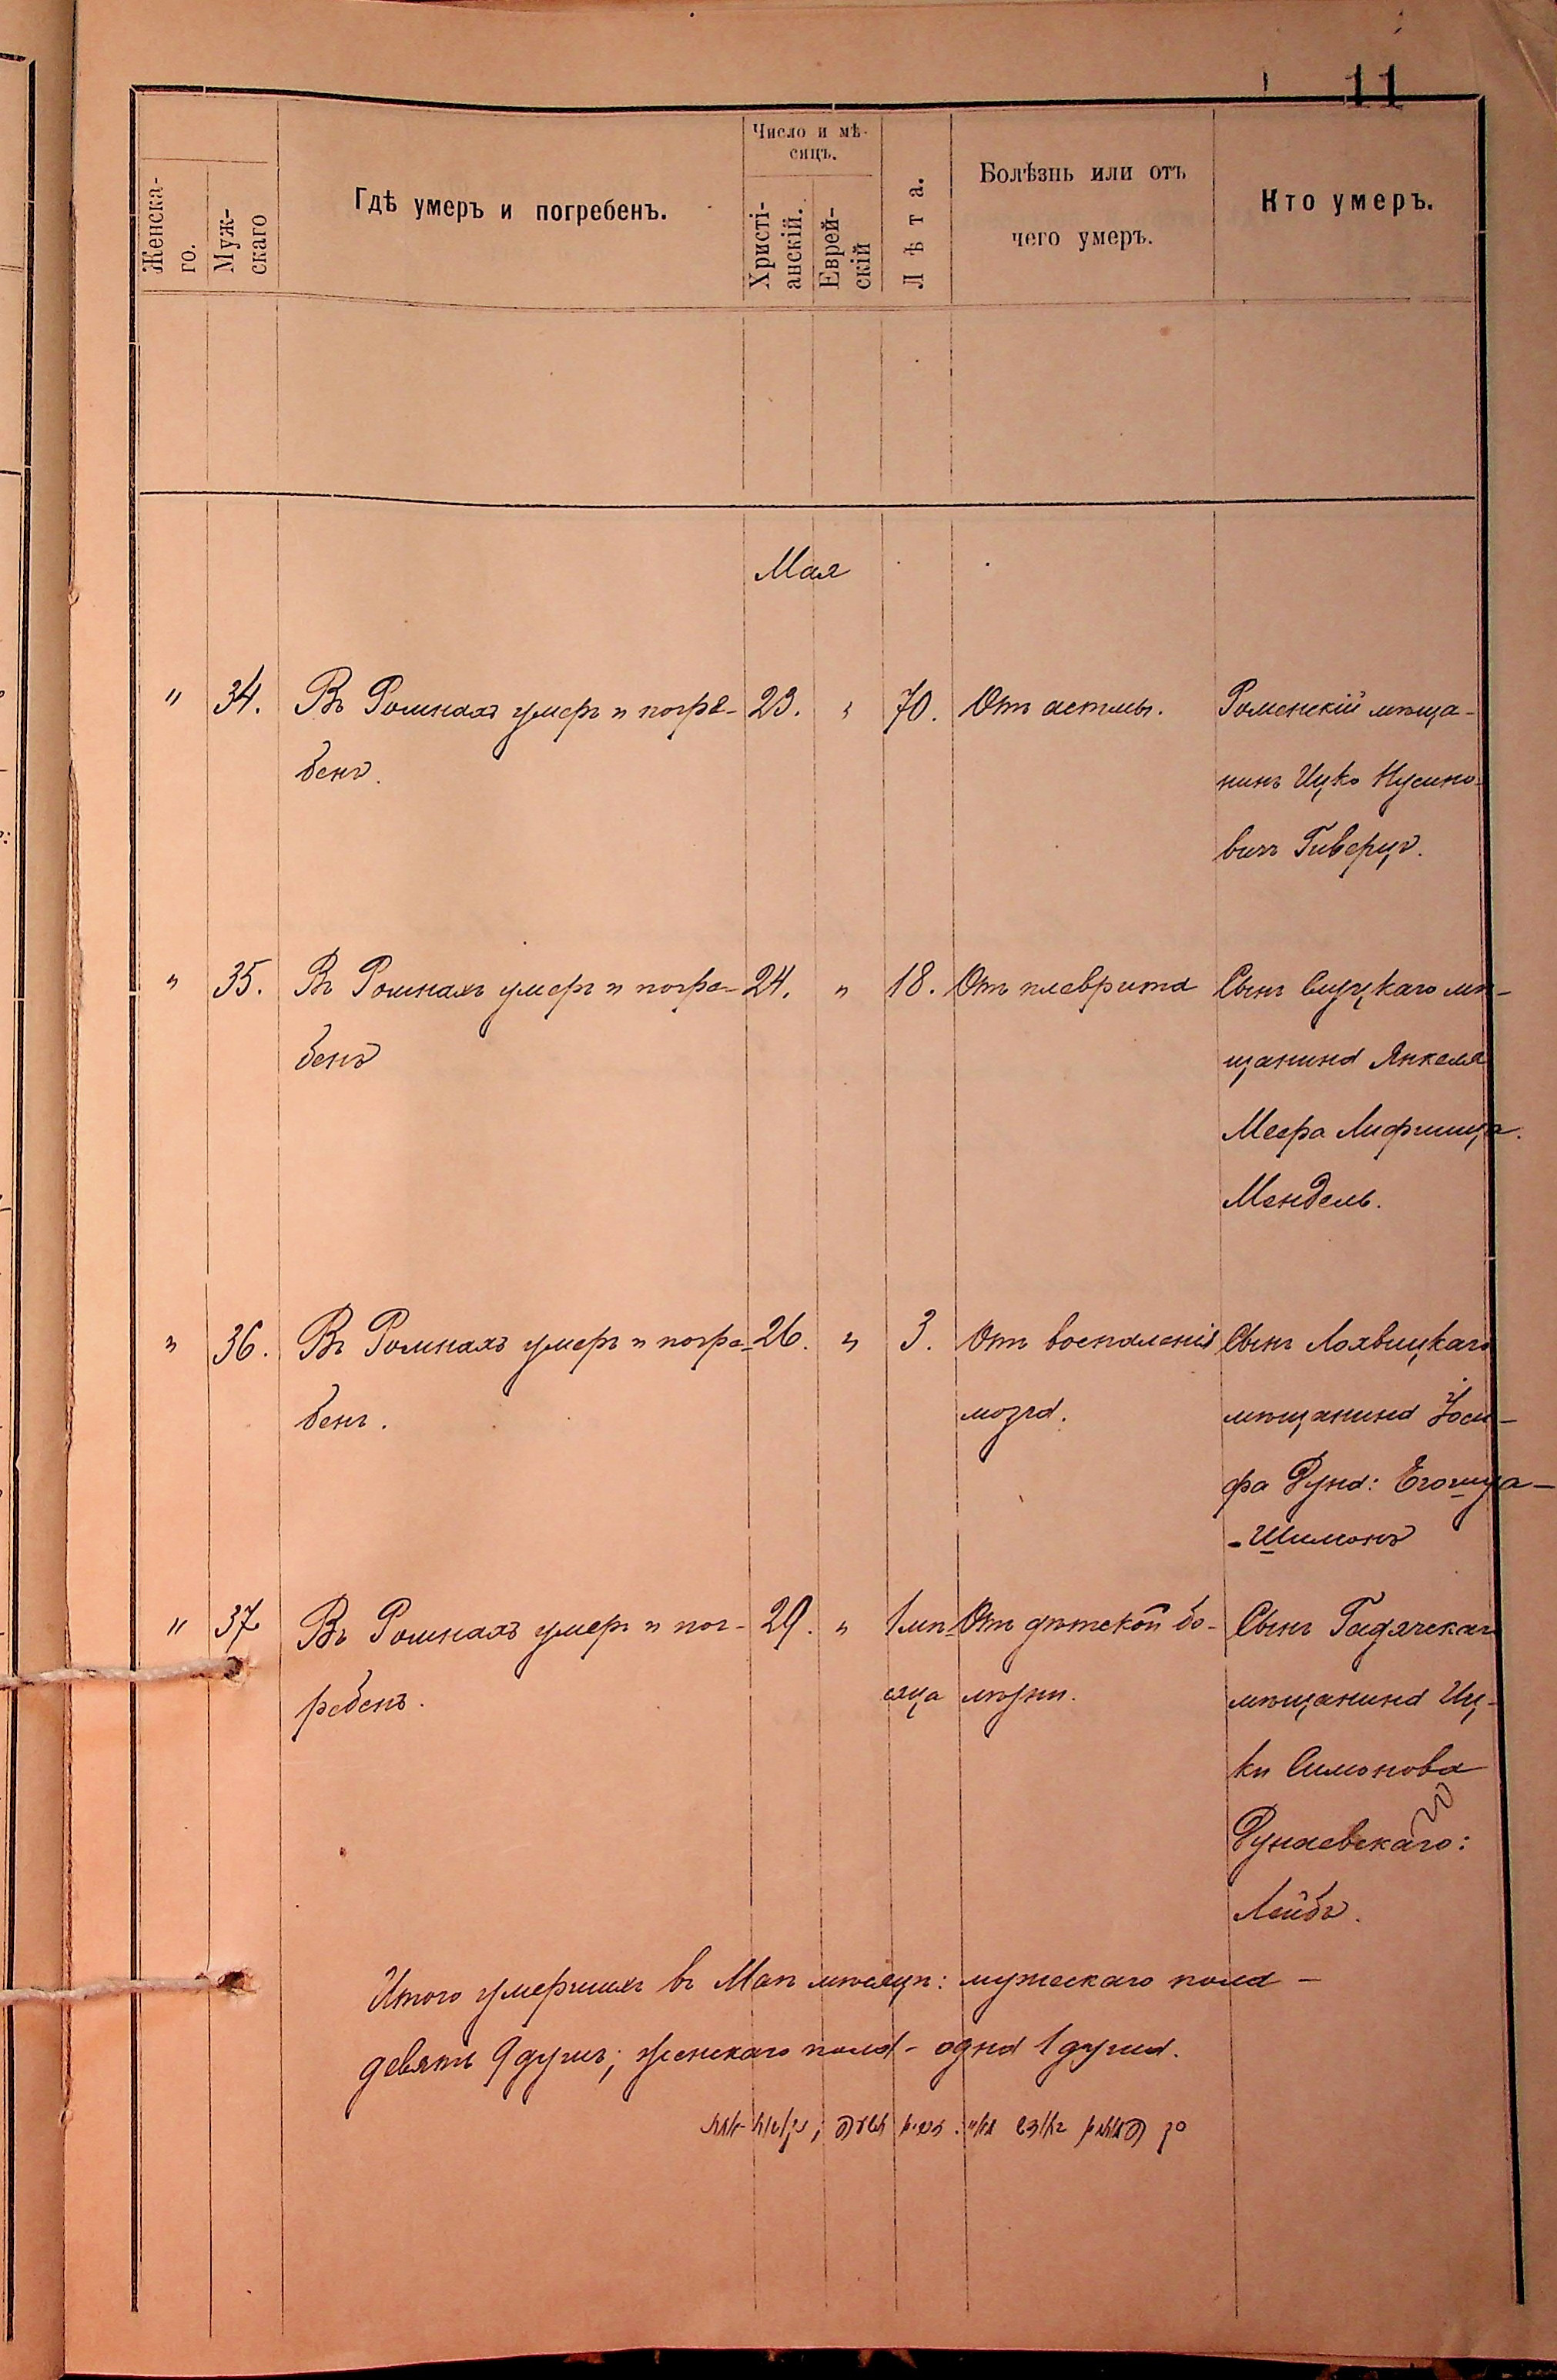 11
Женска-
го.
Муж-
скаго
Гдѣ умеръ и погребенъ.
Число и мѣ-
сяцъ.
Христі-
анскій.
Еврей-
скій
Лѣта.
Болѣзнь или отъ
чего умеръ.
Кто умеръ.
Мая
" 34. Въ Ромнахъ умеръ и погре- 23. " 70. Отъ астмы. Роменскій мѣща-
бенъ. нинъ Ицко Нусино-
вичъ Гиверцъ.
" 35. Въ Ромнахъ умеръ и погре- 24. " 18. Отъ плеврита Сынъ Слуцкаго мѣ-
бенъ щанина Янкеля
Меера Лифшица.
Мендель.
" 36. Въ Ромнахъ умеръ и погре- 26. " 3. Отъ воспаленія Сынъ Лохвицкаго
бенъ. мозга. мѣщанина Іоси-
фа Рунд: Егошуа-
-Шимонъ
" 37 Въ Ромнахъ умеръ и пог- 29. " 1 мѣ- Отъ дѣтской бо- Сынъ Гадячскаго
ребенъ. сяца лѣзни. мѣщанина Иц-
ки Симонова
Рунаевскаго:
Лейбъ.
Итого умершихъ въ Маѣ мѣсяцѣ: мужескаго пола -
девять 9 душъ; женскаго пола - одна 1 душа.